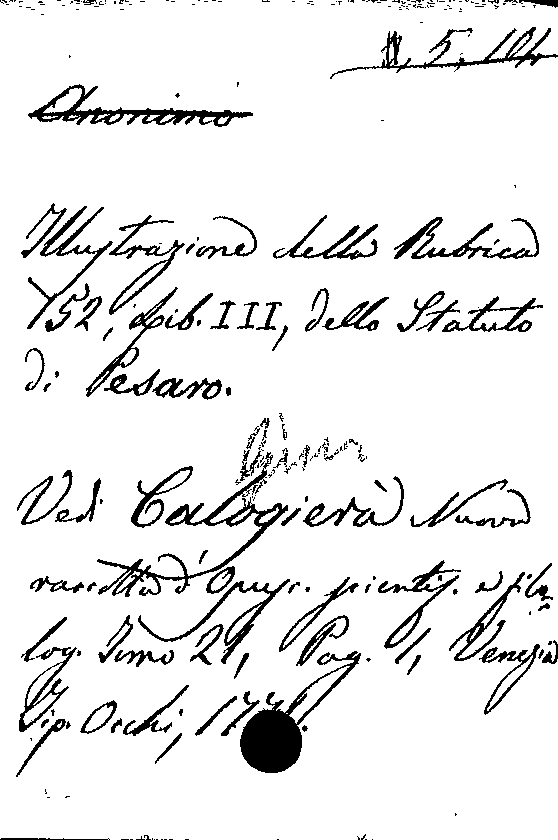 5, 104
Anonimo
Illustrazione della Rubrica
152, Lib. III, dello Statuto
di Pesaro.
Vedi Calogierà Nuova
raccolta d'Opusc. scientif. e filo
log. Tomo 21, Pag. 1, Venezia
Tip. Occhi, 177